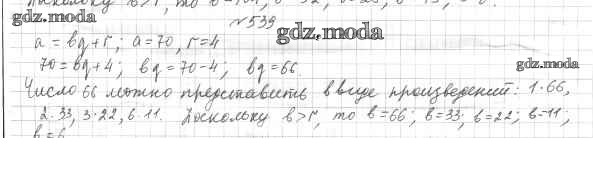 gdz.moda
№539
gdz.moda
a = bq + r; a = 70, r = 4
70 = bq + 4; bq = 70 - 4; bq = 66.
gdz.moda
Число 66 можно представить в виде произведений: 1·66,
2·33, 3·22, 6·11. Поскольку b > r, то b = 66; b = 33; b = 22; b = 11;
b = 6